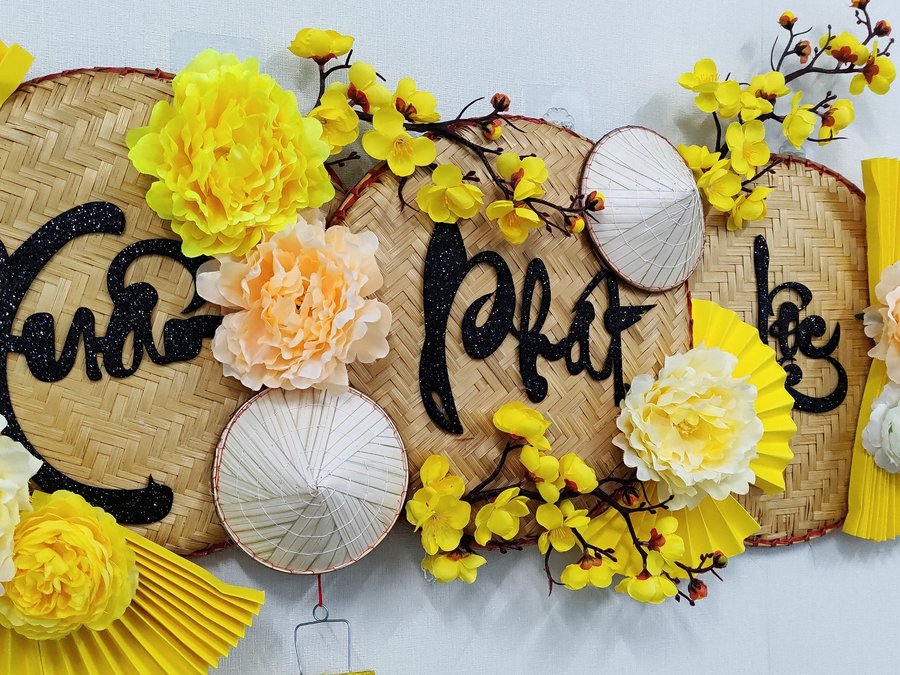 Xuân Phát Lộc